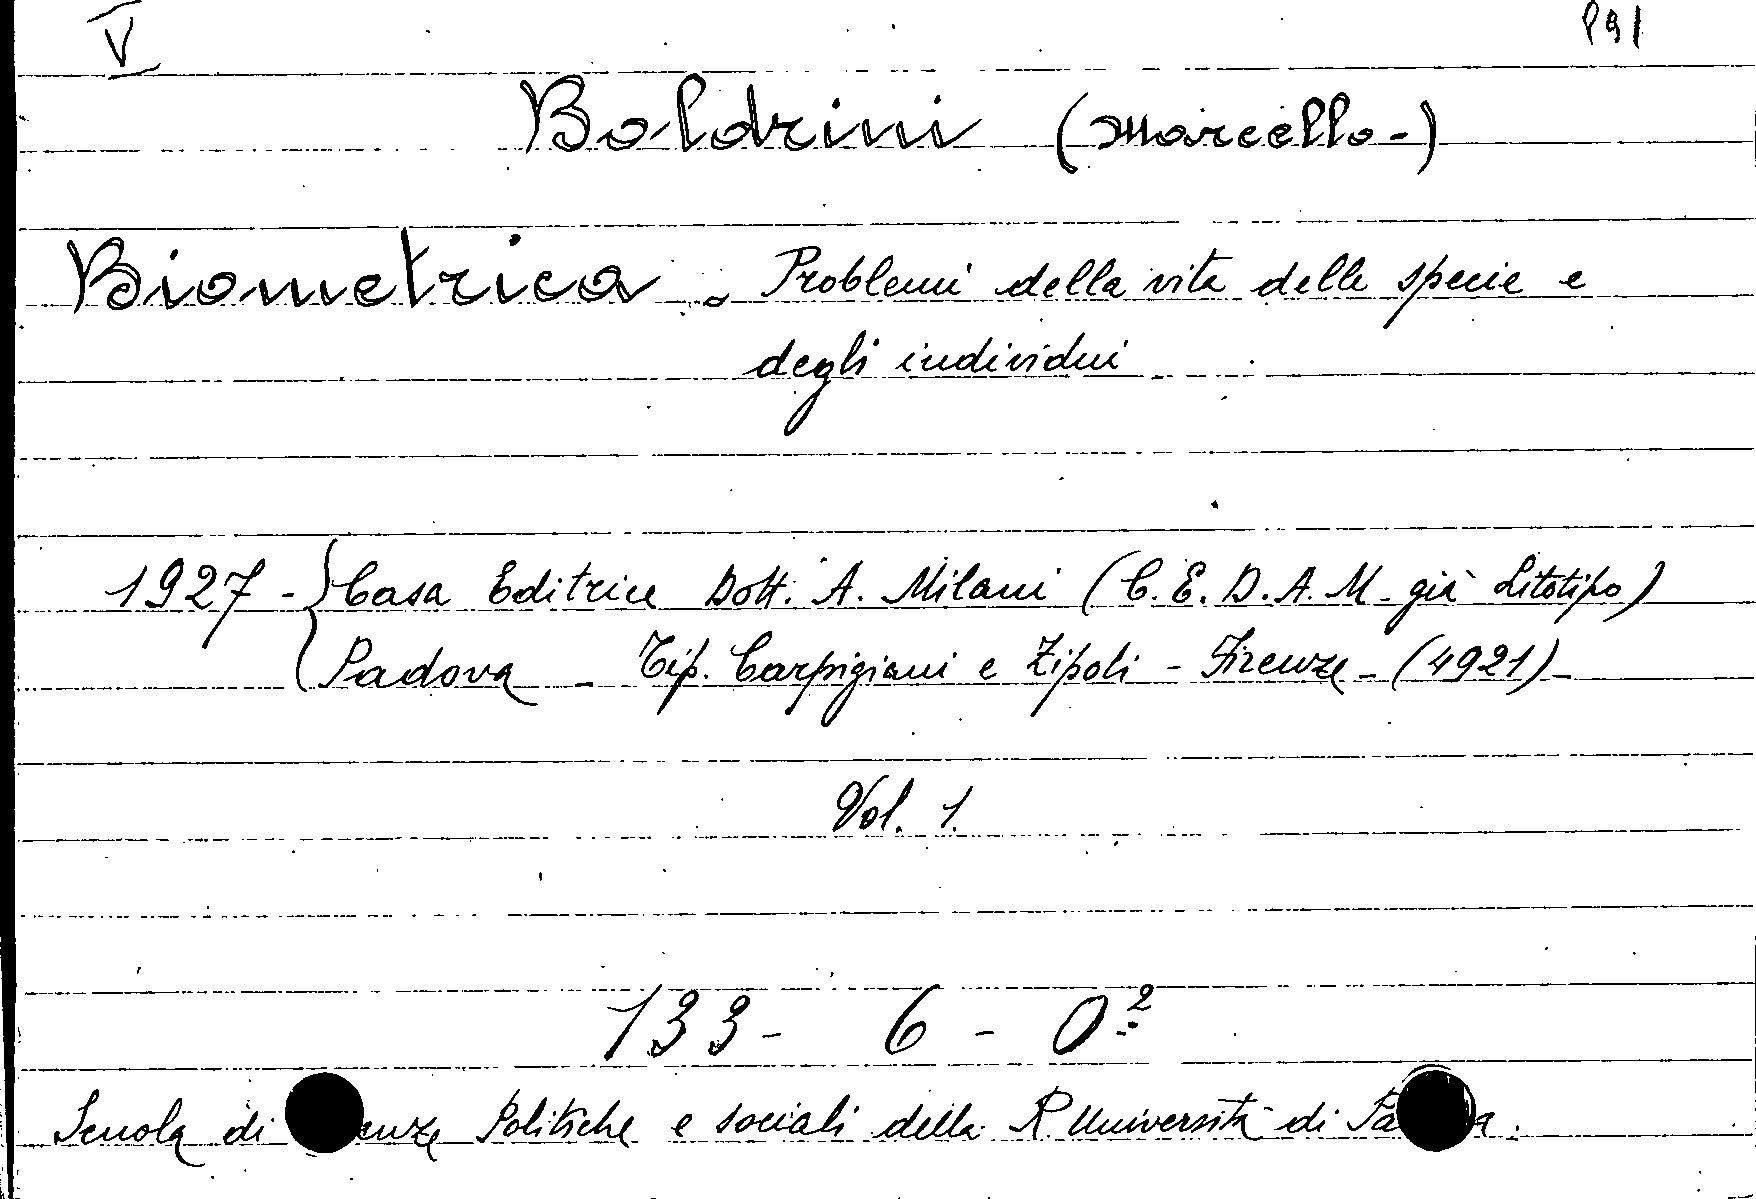 V
Boldrini (Marcello-)
Biometrica - Problemi della vita delle specie e
degli individui
1927 - Casa Editrice Dott. A. Milani (C.E.D.A.M - già Litotipo)
Padova - Tip. Carpigiani e Zipoli - Firenze - (4921) -
Vol. 1.
133 - 6 - 0²
Scuola di enze Politiche e sociali della R. Università di